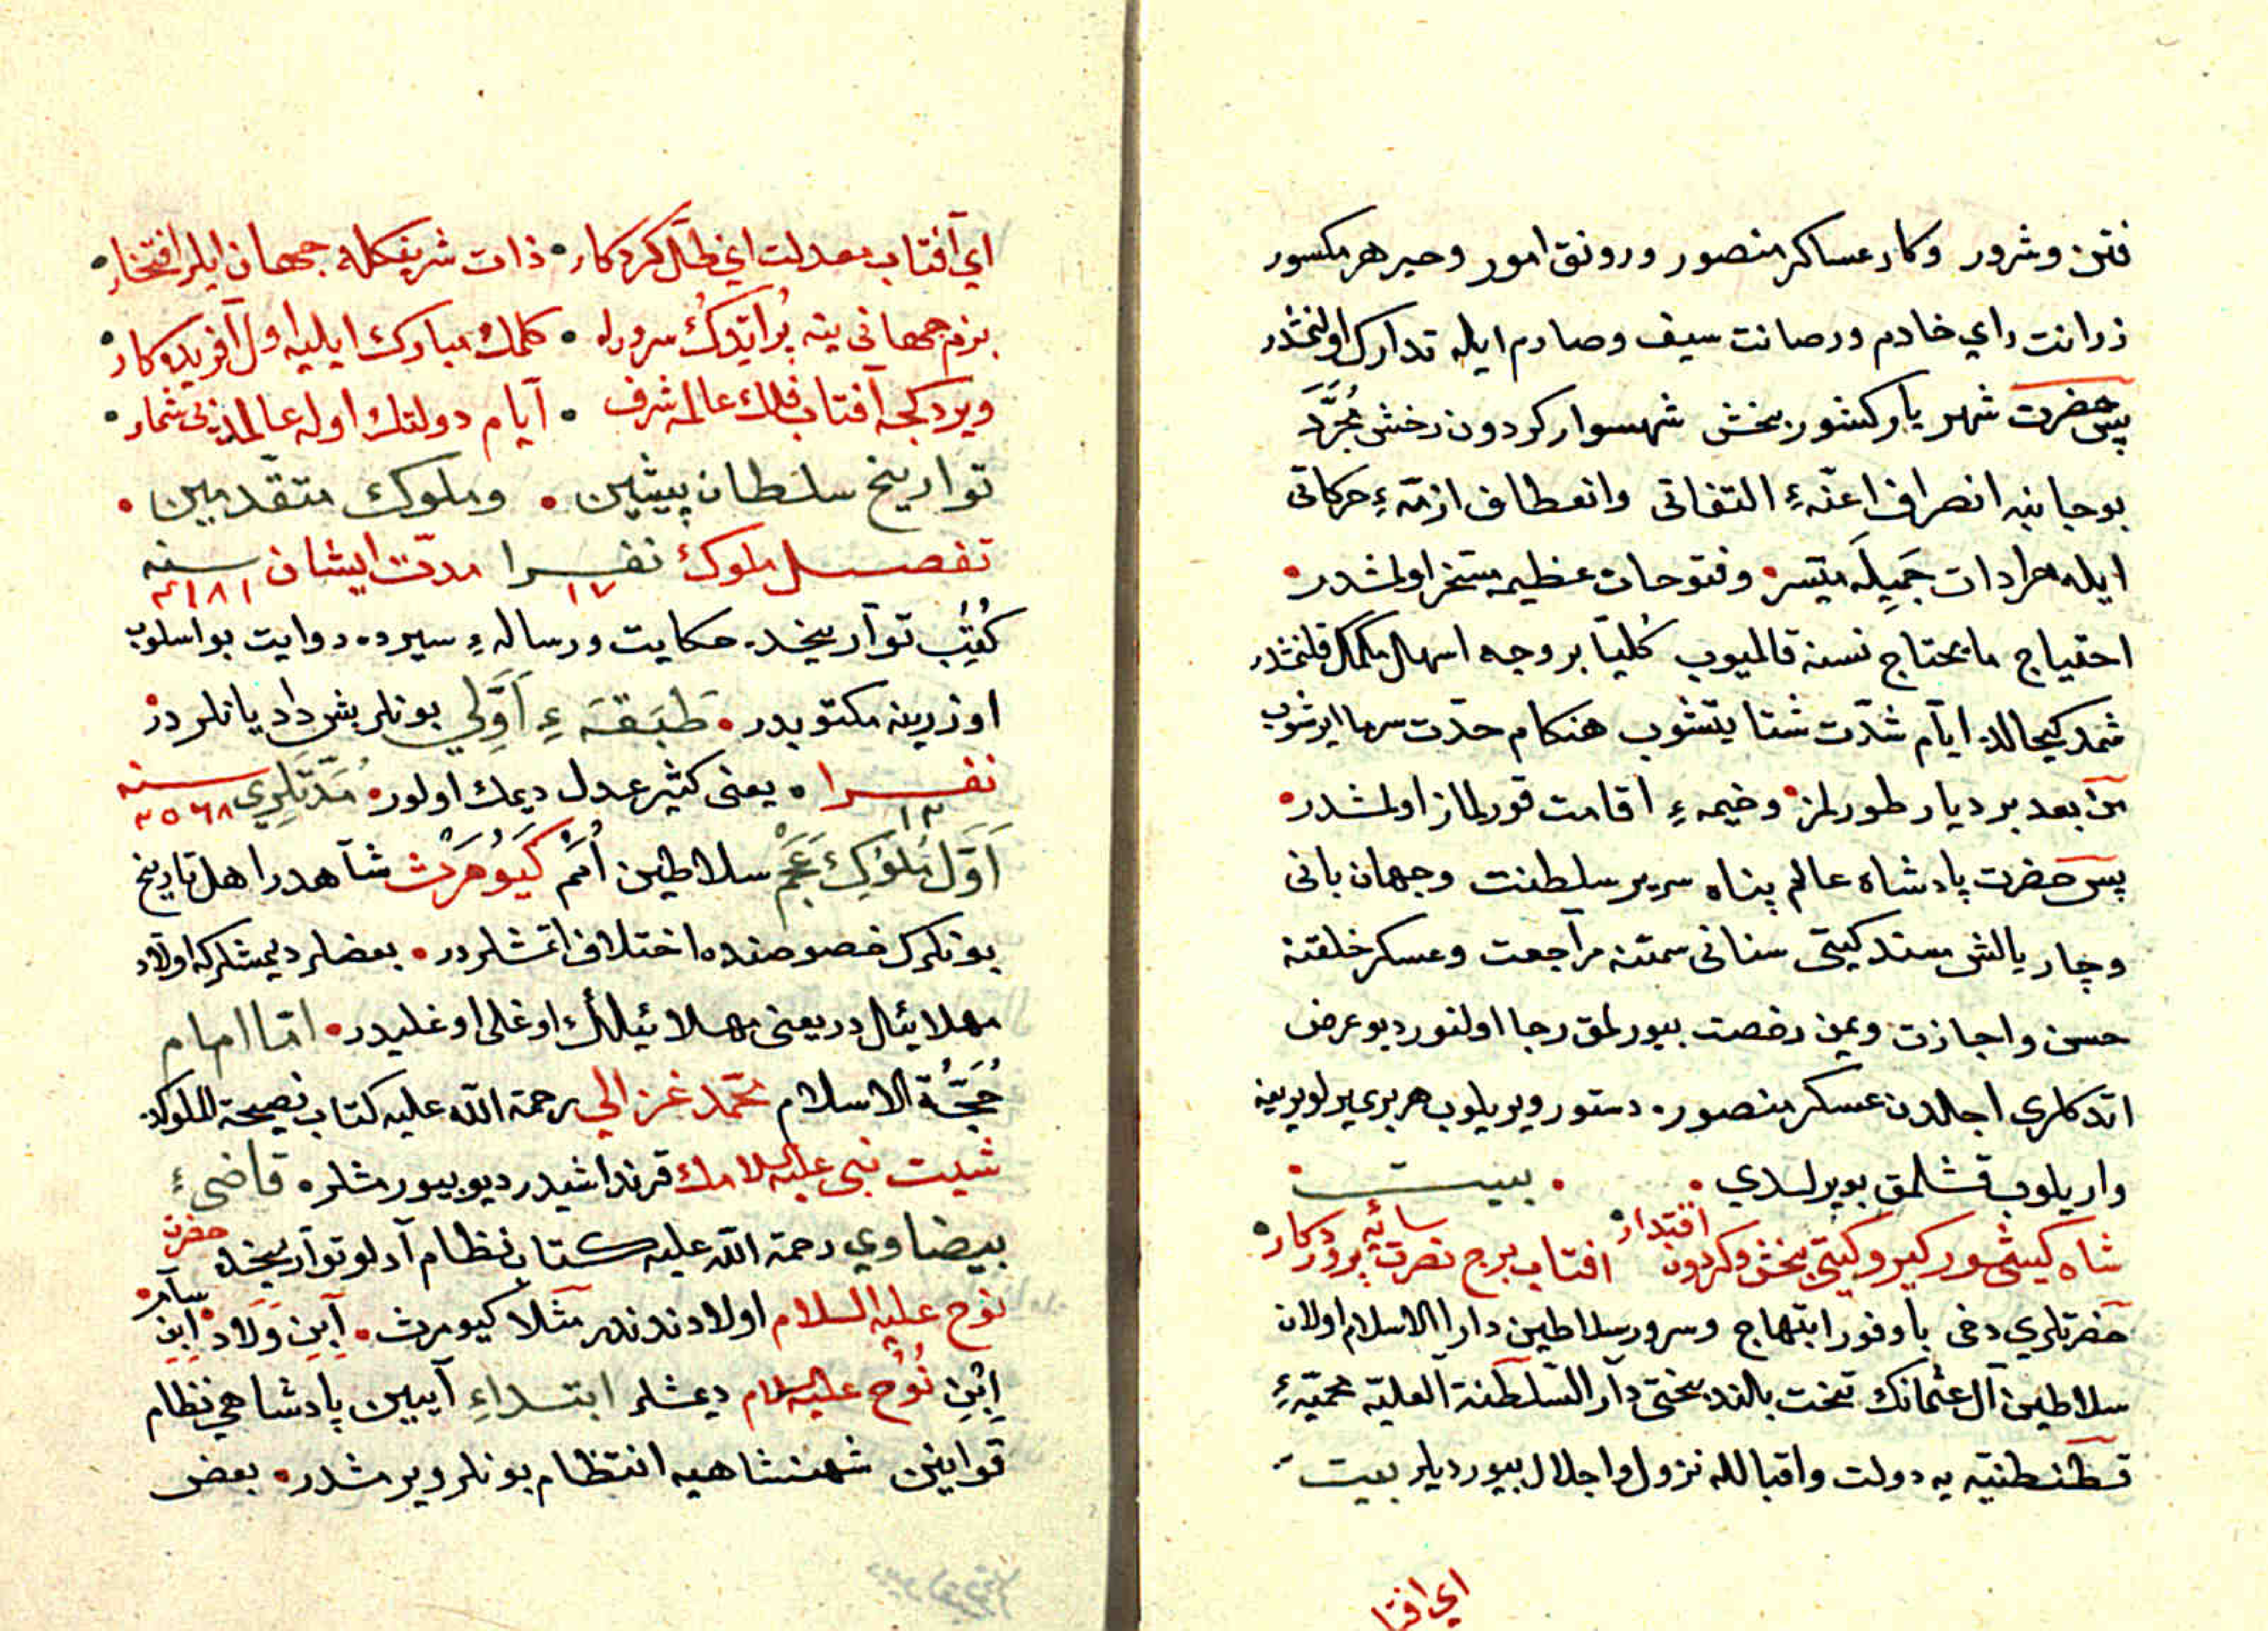 فتن وشرور وكار عساكر منصور ورونق امور وجبر هر مكسور
زرانت راي خادم ورصانت سيف وصارم ايله تدارك اولنمشدر
پس حضرت شهريار كشور بخش شهسوار كردون رخش مجرّد
بو جانبه انصراف اعنّهٔ التفاتی وانعطاف ازمّهٔ حركاتی
ايله مرادات جميله ميّسر وفتوحات عظيمه مسخر اولمشدر
احتياج ما يحتاج نسنه قالميوب كُليّا بر وجه اسهل مكمّل قلنمشدر
شمد كيحالده ايّام شدّت شتا يتشوب هنكام حدّت سرما ايرشوب
من بعد بر ديار طورلمز وخيمهٔ اقامت قورلماز اولمشدر
پس حضرت پادشاه عالم پناه سرير سلطنت وجهان بانی
وچار يالش مسند كيتی ستانی سمتنه مراجعت وعسكر خلقنه
حسن واجازت ويمن رخصت بيورلمق رجا اولنور ديو عرض
اتدكلری اجلدن عسكر منصوره دستور ويريلوب هر بری يرلو يرينه
واريلوب قشلمق بويرلدي بيت
شاه كيشور كير وكيتی بخش وكردون اقتدار افتاب برج نصرت سائه پروردكار
حضرتلري دخی با وفور ابتهاج وسرور سلاطين دارا الاسلام اولان
سلاطين آل عثمانك تخت بالند بختی دار السّلطنة العليّه محميّهٔ
قسطنطنيّه يه دولت واقبالله نزول واجلال بيورديلر بيت
اي افتا
اي آفتاب معدلت اي ظلّ كردكار ذات شريفكله جهان ايلر افتخار
بزم جهانی ينه بُر ايتدوكُ سروراه كلمك مبارك ايليه اول آفريده كار
ويردكجه آفتاب فلك عالمه شرف ايّام دولتك اوله عالمده بی شمار
تواريخ سلطان پيشين وملوك متقدّمين
تفصيل ملوك نفرا ١٧ مدّت ايشان سنه ٤١٨١
كُتُب تواريخده حكايت ورسالهٔ سيرده روايت بو اسلوب
اوزرينه مكتوبدر طَبَقَهٔ اَوَّلي بونلر بش داد يانلردر
نفرا ١٣ يعنی كثير عدل ديمك اولور مُدّتلَرِی سنه ٢٥٦٨
اَوّل مُلُوكِ عَجَمْ سلاطين اُمَم كَيُومَرْث شاهدر اهل تاريخ
بونكرك خصوصنده اختلاف اتمشلردر بعضلر ديمشلركه اولاد
مهلائيال در يعنی مهلائيلك اوغلی اوغليدر امّا امام
حُجّةُ الاسلام محمّد غزالي رحمة الله عليه كتاب نصيحة الملوكده
شيت نبی عليه السلامك قرنداشيدر ديو بيورمشلره قاضیٔ
بيضاوي رحمة الله عليه كتاب نظام آدلو تواريخده حضرت
نوح عليه السلام اولادندندر مثلا كيومرث اِبن وَلاد اِبن سام
اِبْنِ نُوح عليه السلام ديمشلر ابتداءِ آيين پادشاهي نظام
قوانين شهنشاهيه انتظام بونلر ويرمشدر بعض